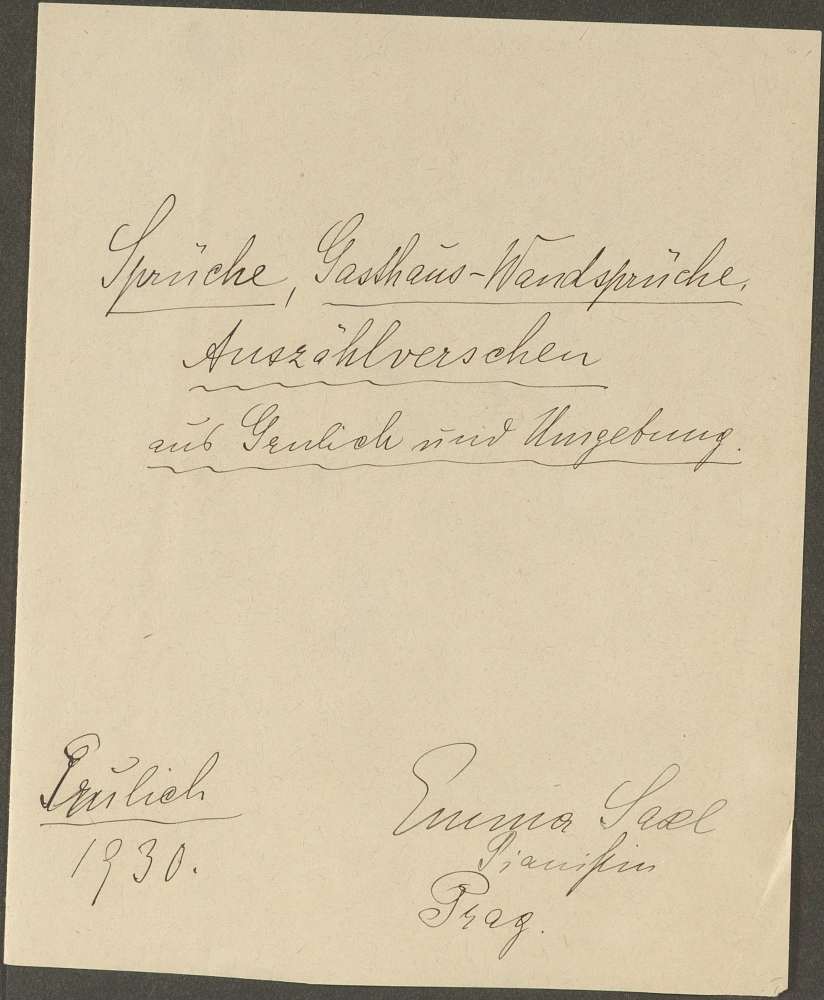 Sprüche, Gasthaus-Wandsprüche,
Auszählverschen
aus Grulich und Umgebung.
Grulich
1930.
Emma Saxl
Pianistin
Prag.